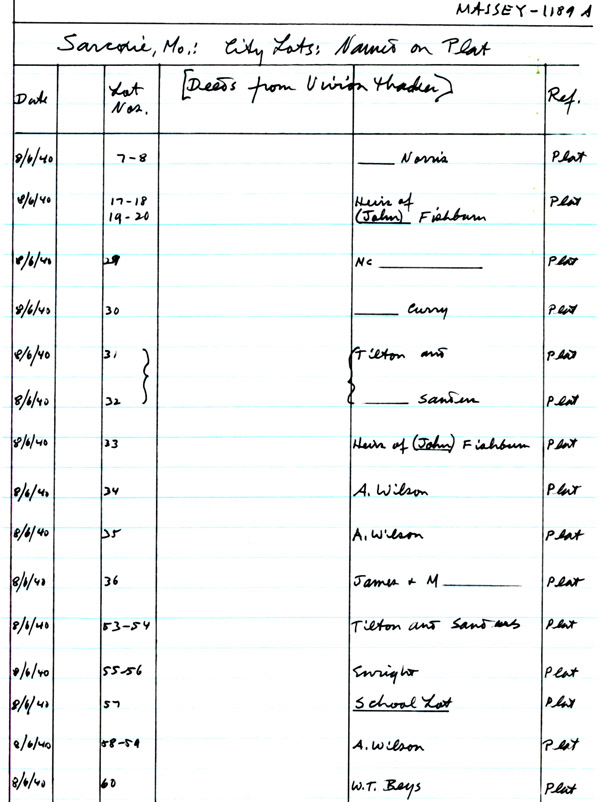 MASSEY-1189 A
Sarcoxie, Mo.: City Lots: Names on Plat
Date Lot Nos. [Deeds from Vivion Thacker] Ref.
8/6/40 7-8 ____ Norris Plat
8/6/40 17-18 Heirs of Plat
19-20 (John) Fishburn
8/6/40 29 Mc ____ Plat
8/6/40 30 ____ Curry Plat
8/6/40 31 } { Tilton and Plat
8/6/40 32 ____ Sanders Plat
8/6/40 33 Heirs of (John) Fishburn Plat
8/6/40 34 A. Wilson Plat
8/6/40 35 A. Wilson Plat
8/6/40 36 James + M ____ Plat
8/6/40 53-54 Tilton and Sanders Plat
8/6/40 55-56 Enright Plat
8/6/40 57 School Lot Plat
8/6/40 58-59 A. Wilson Plat
8/6/40 60 W.T. Beys Plat